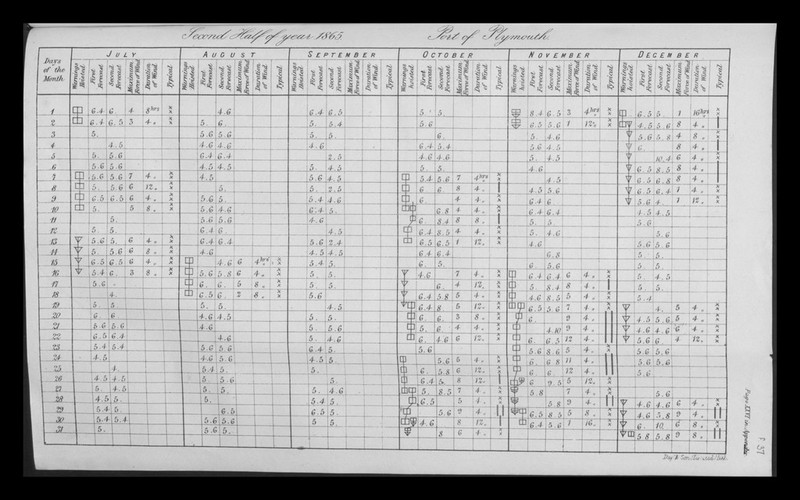 Second Half of year 1865 Port of Plymouth
JULY AUGUST SEPTEMBER OCTOBER NOVEMBER DECEMBER
Days of the Month. Warnings Hoisted. First Forecast. Second Forecast. Maximum Force of Wind. Duration of Wind. Typical. Warnings Hoisted. First Forecast. Second Forecast. Maximum Force of Wind. Duration of Wind. Typical. Warnings Hoisted. First Forecast. Second Forecast. Maximum Force of Wind. Duration of Wind. Typical. Warnings hoisted. First Forecast. Second Forecast. Maximum Force of Wind. Duration of Wind. Typical. Warnings hoisted. First Forecast. Second Forecast. Maximum Force of Wind. Duration of Wind. Typical. Warnings Hoisted. First Forecast. Second Forecast. Maximum Force of Wind. Duration of Wind. Typical.
1 6.4 6. 4 8hrs 4.6 6.4 6.5 5. 5. 8.4 6.5 3 4hrs 6.5 5. 1 16hrs
2 6.4 6.5 3 4 5. 6. 5. 5.4 5.6 6.5 5.6 1 12 4.5 5.6 8 4
3 5. 5.6 5.6 5. 5. 6. 5. 4.6 5.6 5.8 4 8
4 4.5 4.6 4.6 4.6 6.4 5.4 5.6 4.5 6 8 4
5 5. 5.6 6.4 6.4 2.5 4.6 4.6 5. 4.5 10.4 6 4
6 5.6 5.6 4.5 4.5 5. 4.5 5. 5. 4.6 6.5 8.5 8 4
7 5.6 5.6 7 4 4.5 5.6 4.5 5.4 5.6 7 4hrs 4.5 6.5 6.8 8 4
8 5. 5.6 6 12 5. 5. 2.5 6. 6. 8 4 4.5 5.6 6.5 6.4 1 4
9 6.5 6.5 6 4 5.6 5. 5.4 4.6 6. 4 4 6.4 6. 5.6 4. 1 12
10 5. 5 8 5.6 4.6 6.4 5. 6.8 4 4 6.4 6.4 4.5 4.5
11 5. 5.6 5.6 4.6 6. 8.4 8 8 5. 5. 5.6
12 5. 5. 6.4 6. 4.5 6.4 8.5 4 4 5. 4.6 5.6
13 5.6 5. 6 4 6.4 6.4 5.6 2.4 6.5 6.5 1 12 4.6 5.6 5.6
14 5. 5.6 6 8 4.6 4.5 4.5 6.4 6.4 6.8 5. 5.
15 6.5 6.5 6 4 4.6 6 4hrs 5.4 5. 6. 5. 6. 5.6 5. 5.
16 5.4 6. 3 8 5.6 5.8 6 4 5. 5. 4.6 7 4 6.4 6.4 6 4 5. 4.5
17 5.6 6. 6. 5 8 5. 5. 6. 4 12 5. 8.4 8 4 5. 5.
18 4. 6.5 6. 2 8 5.6 6.4 5.8 5 4 4.6 8.5 5 4 5.4
19 5. 5. 5. 5. 4.5 6.4 8. 5 12 6.5 5.6 7 4 4. 5 4
20 6. 6. 4.6 4.5 5. 5. 6. 6. 3 8 6. 9 4 4.5 5.6 5 4
21 5.6 5.6 4.6 5. 5.6 5. 6. 4 4 4.10 9 4 4.6 4.6 6 4
22 6.5 6.4 4.6 5. 4.6 6. 4.6 6 12 6. 6.5 12 4 5.6 6. 4 12
23 5.4 5.4 5.6 5.6 6.4 5. 5.6 5.6 8.6 5 4 5.6 5.6
24 4.5 4.6 5.6 4.5 5. 5.6 5 4 6. 6.8 11 4 5.6 5.6
25 4. 5.4 5. 5. 6. 5.8 6 12 6. 6. 12 4 5.6
26 4.5 4.5 5. 5.6 5. 6.4 5. 8 12 6. 9.5 5 12
27 5. 4.5 5. 5. 5. 4.6 5. 8.5 7 4 5.8 7 4 5.6
28 4.5 5. 5. 5.4 5. 6.5 5 4 5.8 9 4 4.6 4.6 6 4
29 5.4 5. 6.5 6.5 5. 5.6 9 4 6.5 8.5 5 8 4.6 5.8 9 4
30 5.4 5.4 5.6 5.6 5. 5. 4.6 8 12 6.4 5.6 1 16 6. 10. 6 8
31 5. 5.6 5. 8 6 4 5.8 5.8 9 8
Page XXVI in Appendix